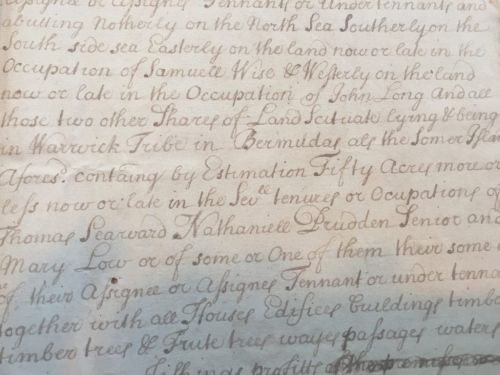 Assignee or Assignes Tennants or Undertennants and
abutting Notherly on the North Sea Southerly on the
South side sea Easterly on the land now or late in the
Occupation of Samuell Wise & Westerly on the land
now or late in the Occupation of John Long And all
those two other Shares of Land Scituate lying & being
in Warwick Tribe in Bermudas als the Somer Islan
Afores.d containg by Estimation Fifty Acres more or
less now or late in the Sev.ll tenures or Ocupations of
Thomas Searward Nathaniell Prudden Senior and
Mary Low or of some or One of them their some
of their Assignee or Assignes Tennant or under tenna
together with all Houses Edifices buildings timber
timber trees & Frute trees wayes passages waters
fishings profitts